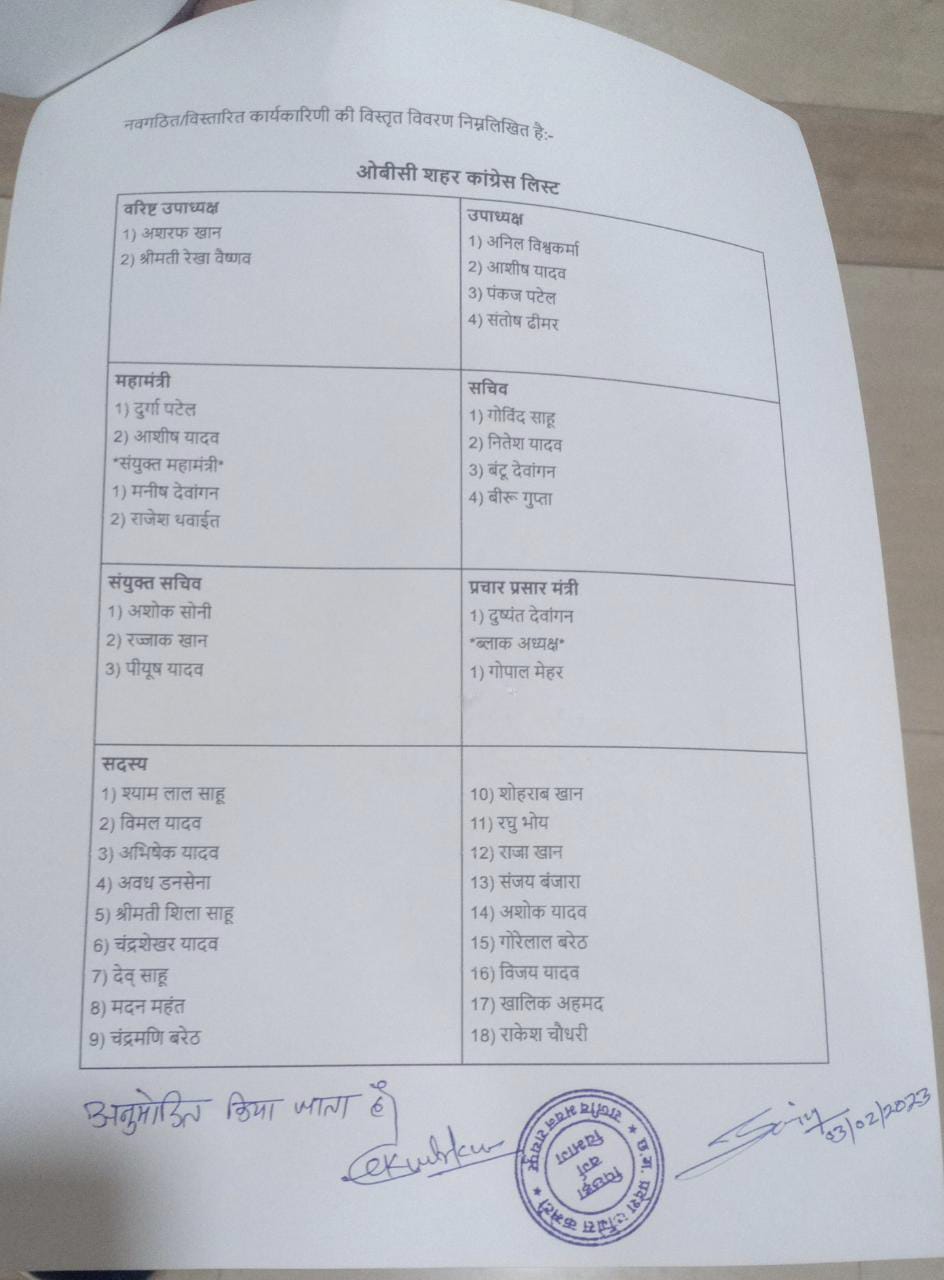 नवगठित/विस्तारित कार्यकारिणी की विस्तृत विवरण निम्नलिखित है:-
ओबीसी शहर कांग्रेस लिस्ट
वरिष्ट उपाध्यक्ष
1) अशरफ खान
2) श्रीमती रेखा वैष्णव
उपाध्यक्ष
1) अनिल विश्वकर्मा
2) आशीष यादव
3) पंकज पटेल
4) संतोष ढीमर
महामंत्री
1) दुर्गा पटेल
2) आशीष यादव
*संयुक्त महामंत्री*
1) मनीष देवांगन
2) राजेश थवाईत
सचिव
1) गोविंद साहू
2) नितेश यादव
3) बंटू देवांगन
4) बीरू गुप्ता
संयुक्त सचिव
1) अशोक सोनी
2) रज्जाक खान
3) पीयूष यादव
प्रचार प्रसार मंत्री
1) दुष्यंत देवांगन
*ब्लाक अध्यक्ष*
1) गोपाल मेहर
सदस्य
1) श्याम लाल साहू
2) विमल यादव
3) अभिषेक यादव
4) अवध डनसेना
5) श्रीमती शिला साहू
6) चंद्रशेखर यादव
7) देव् साहू
8) मदन महंत
9) चंद्रमणि बरेठ
10) शोहराब खान
11) रघु भोय
12) राजा खान
13) संजय बंजारा
14) अशोक यादव
15) गोरेलाल बरेठ
16) विजय यादव
17) खालिक अहमद
18) राकेश चौधरी
अनुमोदित किया जाता है।
छ.ग. प्रदेश कांग्रेस कमेटी * राजीव भवन रायपुर *
पिछड़ा
वर्ग
विभाग
03/02/2023